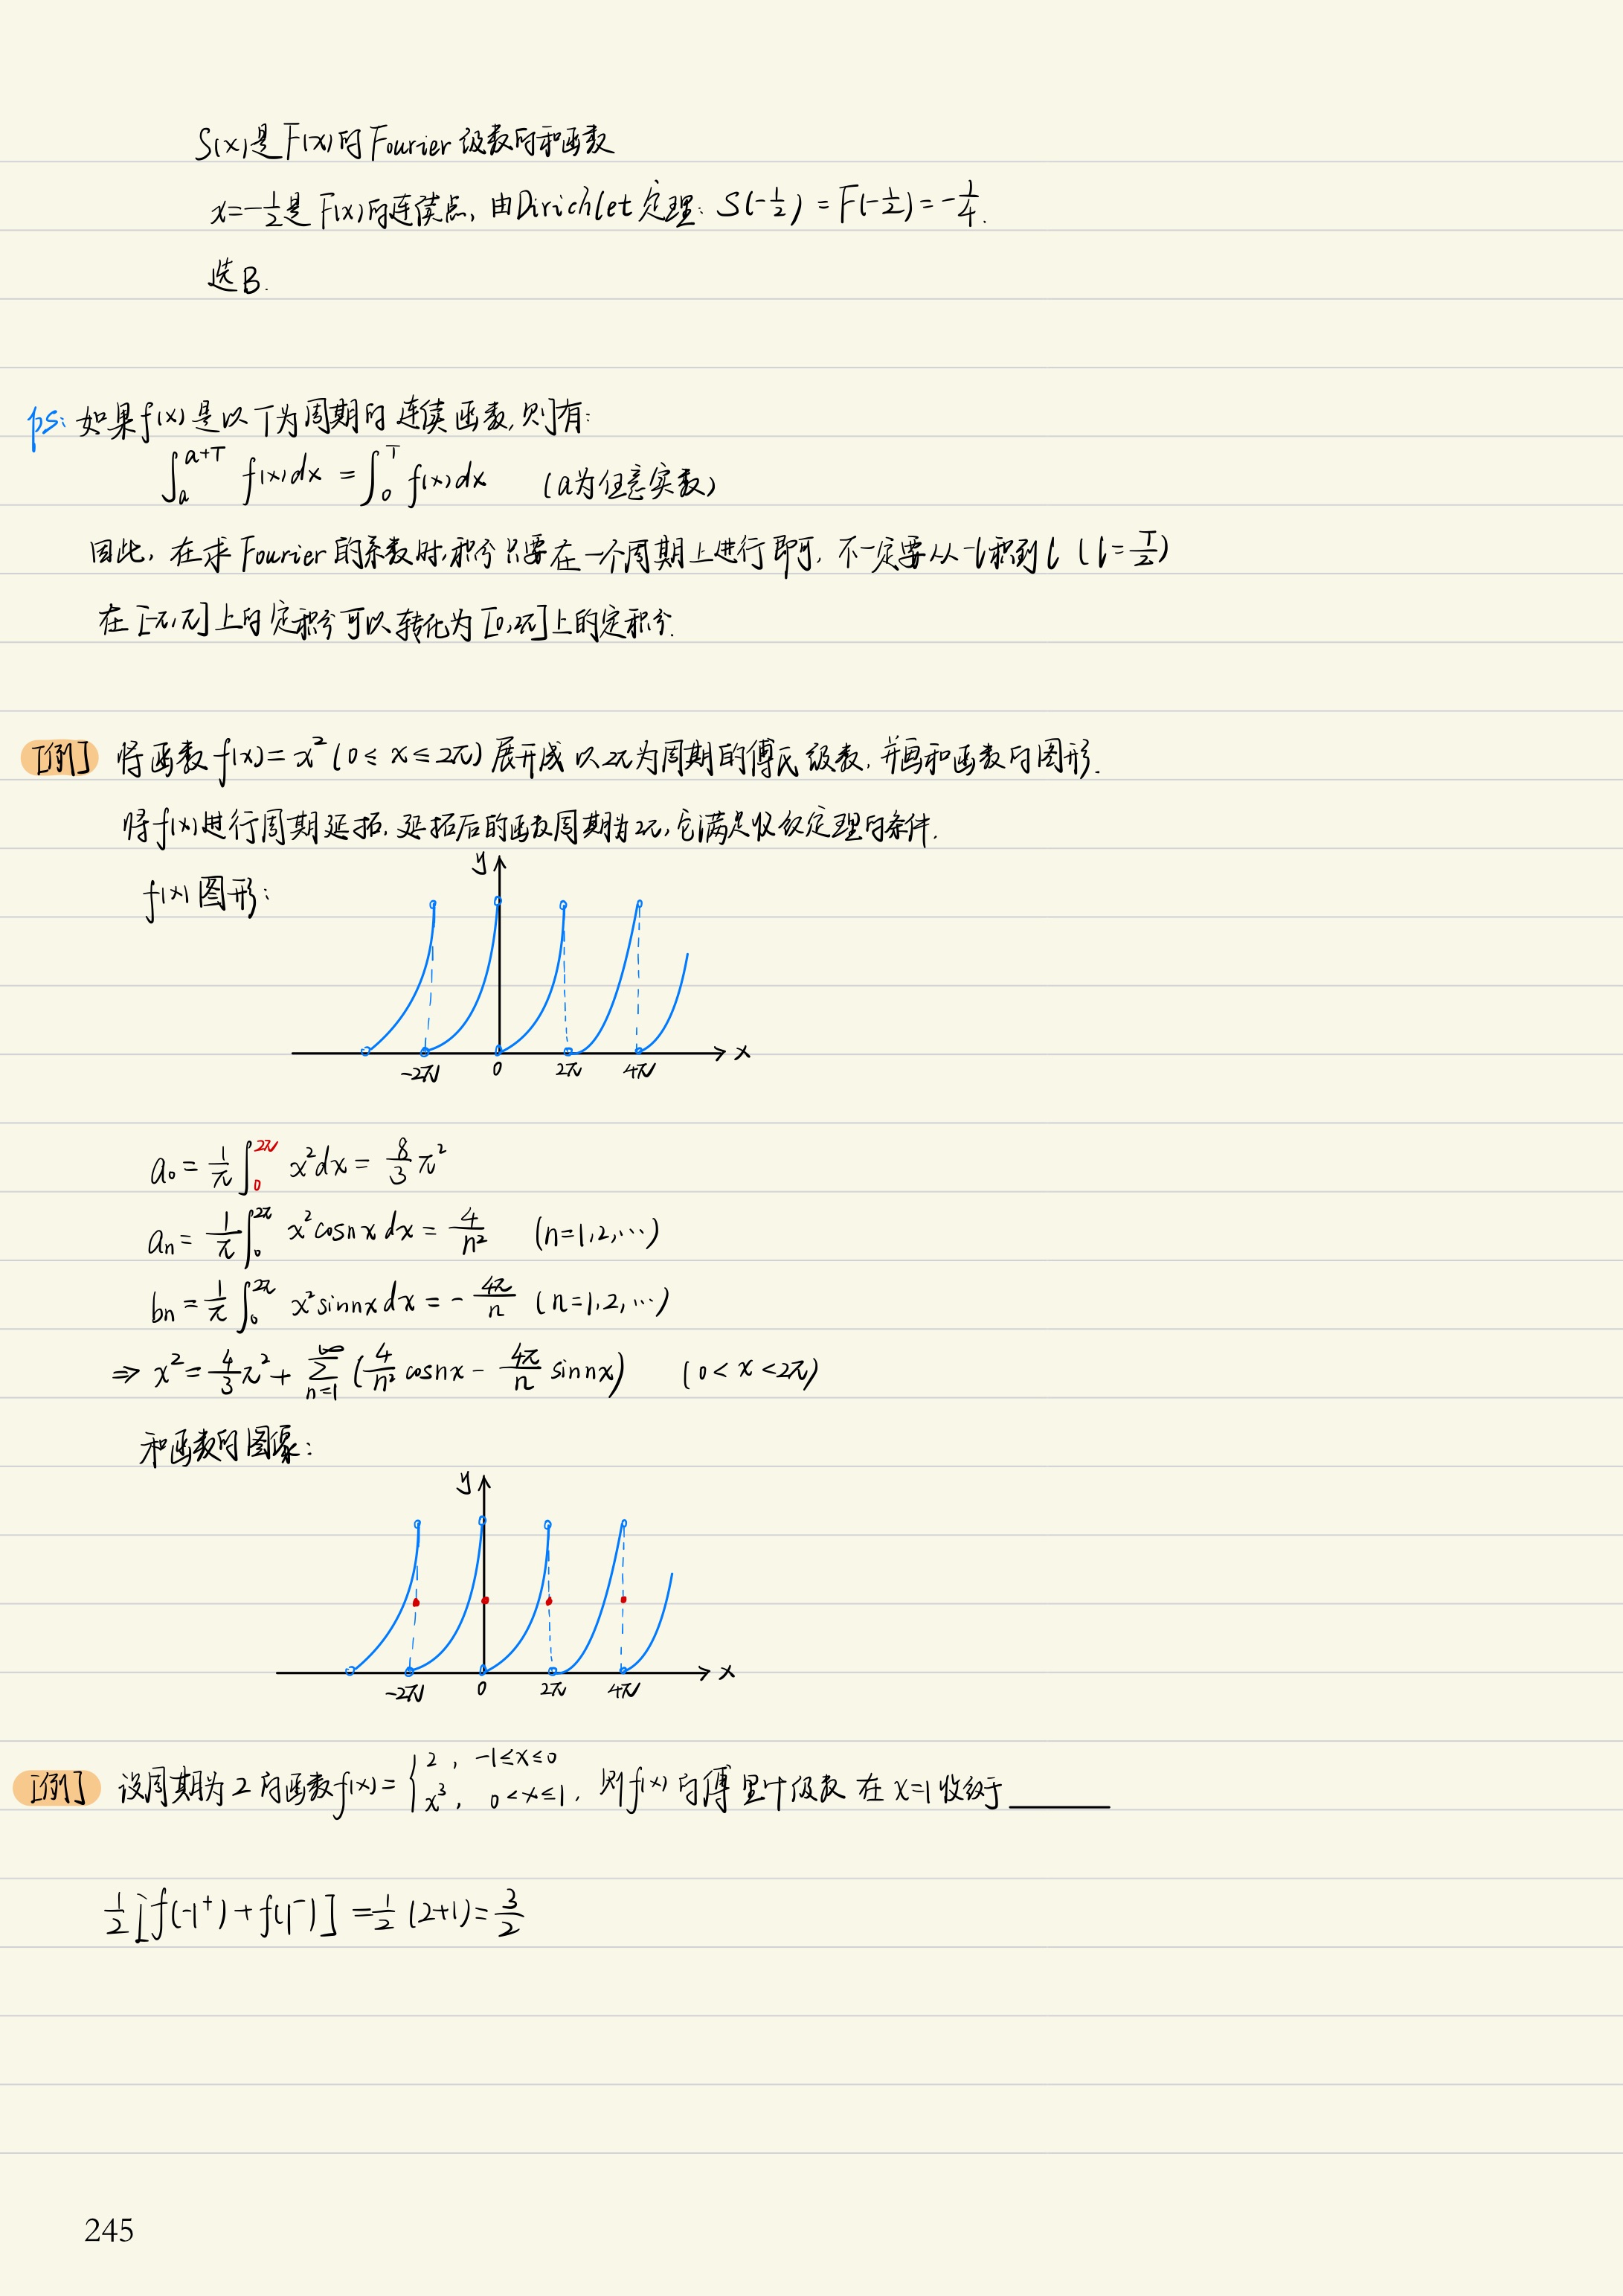 S(x)是F(x)的Fourier级数的和函数
x=-1/2是F(x)的连续点, 由Dirichlet定理: S(-1/2) = F(-1/2) = -1/4.
选B.
ps: 如果f(x)是以T为周期的连续函数, 则有:
∫_a^{a+T} f(x)dx = ∫_0^T f(x)dx (a为任意实数)
因此, 在求Fourier的系数时, 积分只要在一个周期上进行即可, 不一定要从-l积到l (l=T/2)
在[-π,π]上的定积分可以转化为[0,2π]上的定积分.
[例] 将函数f(x)=x² (0≤x≤2π)展开成以2π为周期的傅氏级数, 并画和函数的图形.
将f(x)进行周期延拓, 延拓后的函数周期为2π, 它满足收敛定理的条件.
f(x)图形:
y
x
-2π 0 2π 4π
a₀ = 1/π ∫_0^{2π} x²dx = 8/3 π²
aₙ = 1/π ∫_0^{2π} x²cosnxdx = 4/n² (n=1,2,…)
bₙ = 1/π ∫_0^{2π} x²sinnxdx = -4π/n (n=1,2,…)
⇒ x² = 4/3 π² + ∑_{n=1}^∞ (4/n² cosnx - 4π/n sinnx) (0<x<2π)
和函数的图象:
y
x
-2π 0 2π 4π
[例] 设周期为2的函数f(x)= { 2, -1≤x≤0
x³, 0<x≤1, 则f(x)的傅里叶级数在x=1收敛于______
1/2[f(-1⁺)+f(1⁻)] = 1/2(2+1) = 3/2
245